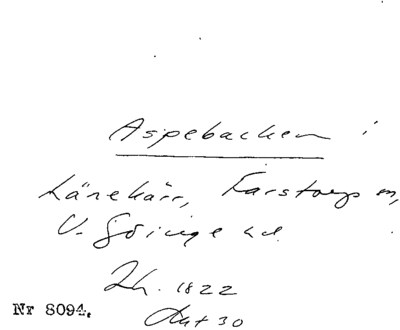 Aspebacken i
Länekärr, Farstorps sn,
V. Göinge hd.
Lh. 1822
Akt 30
Nr 8094.